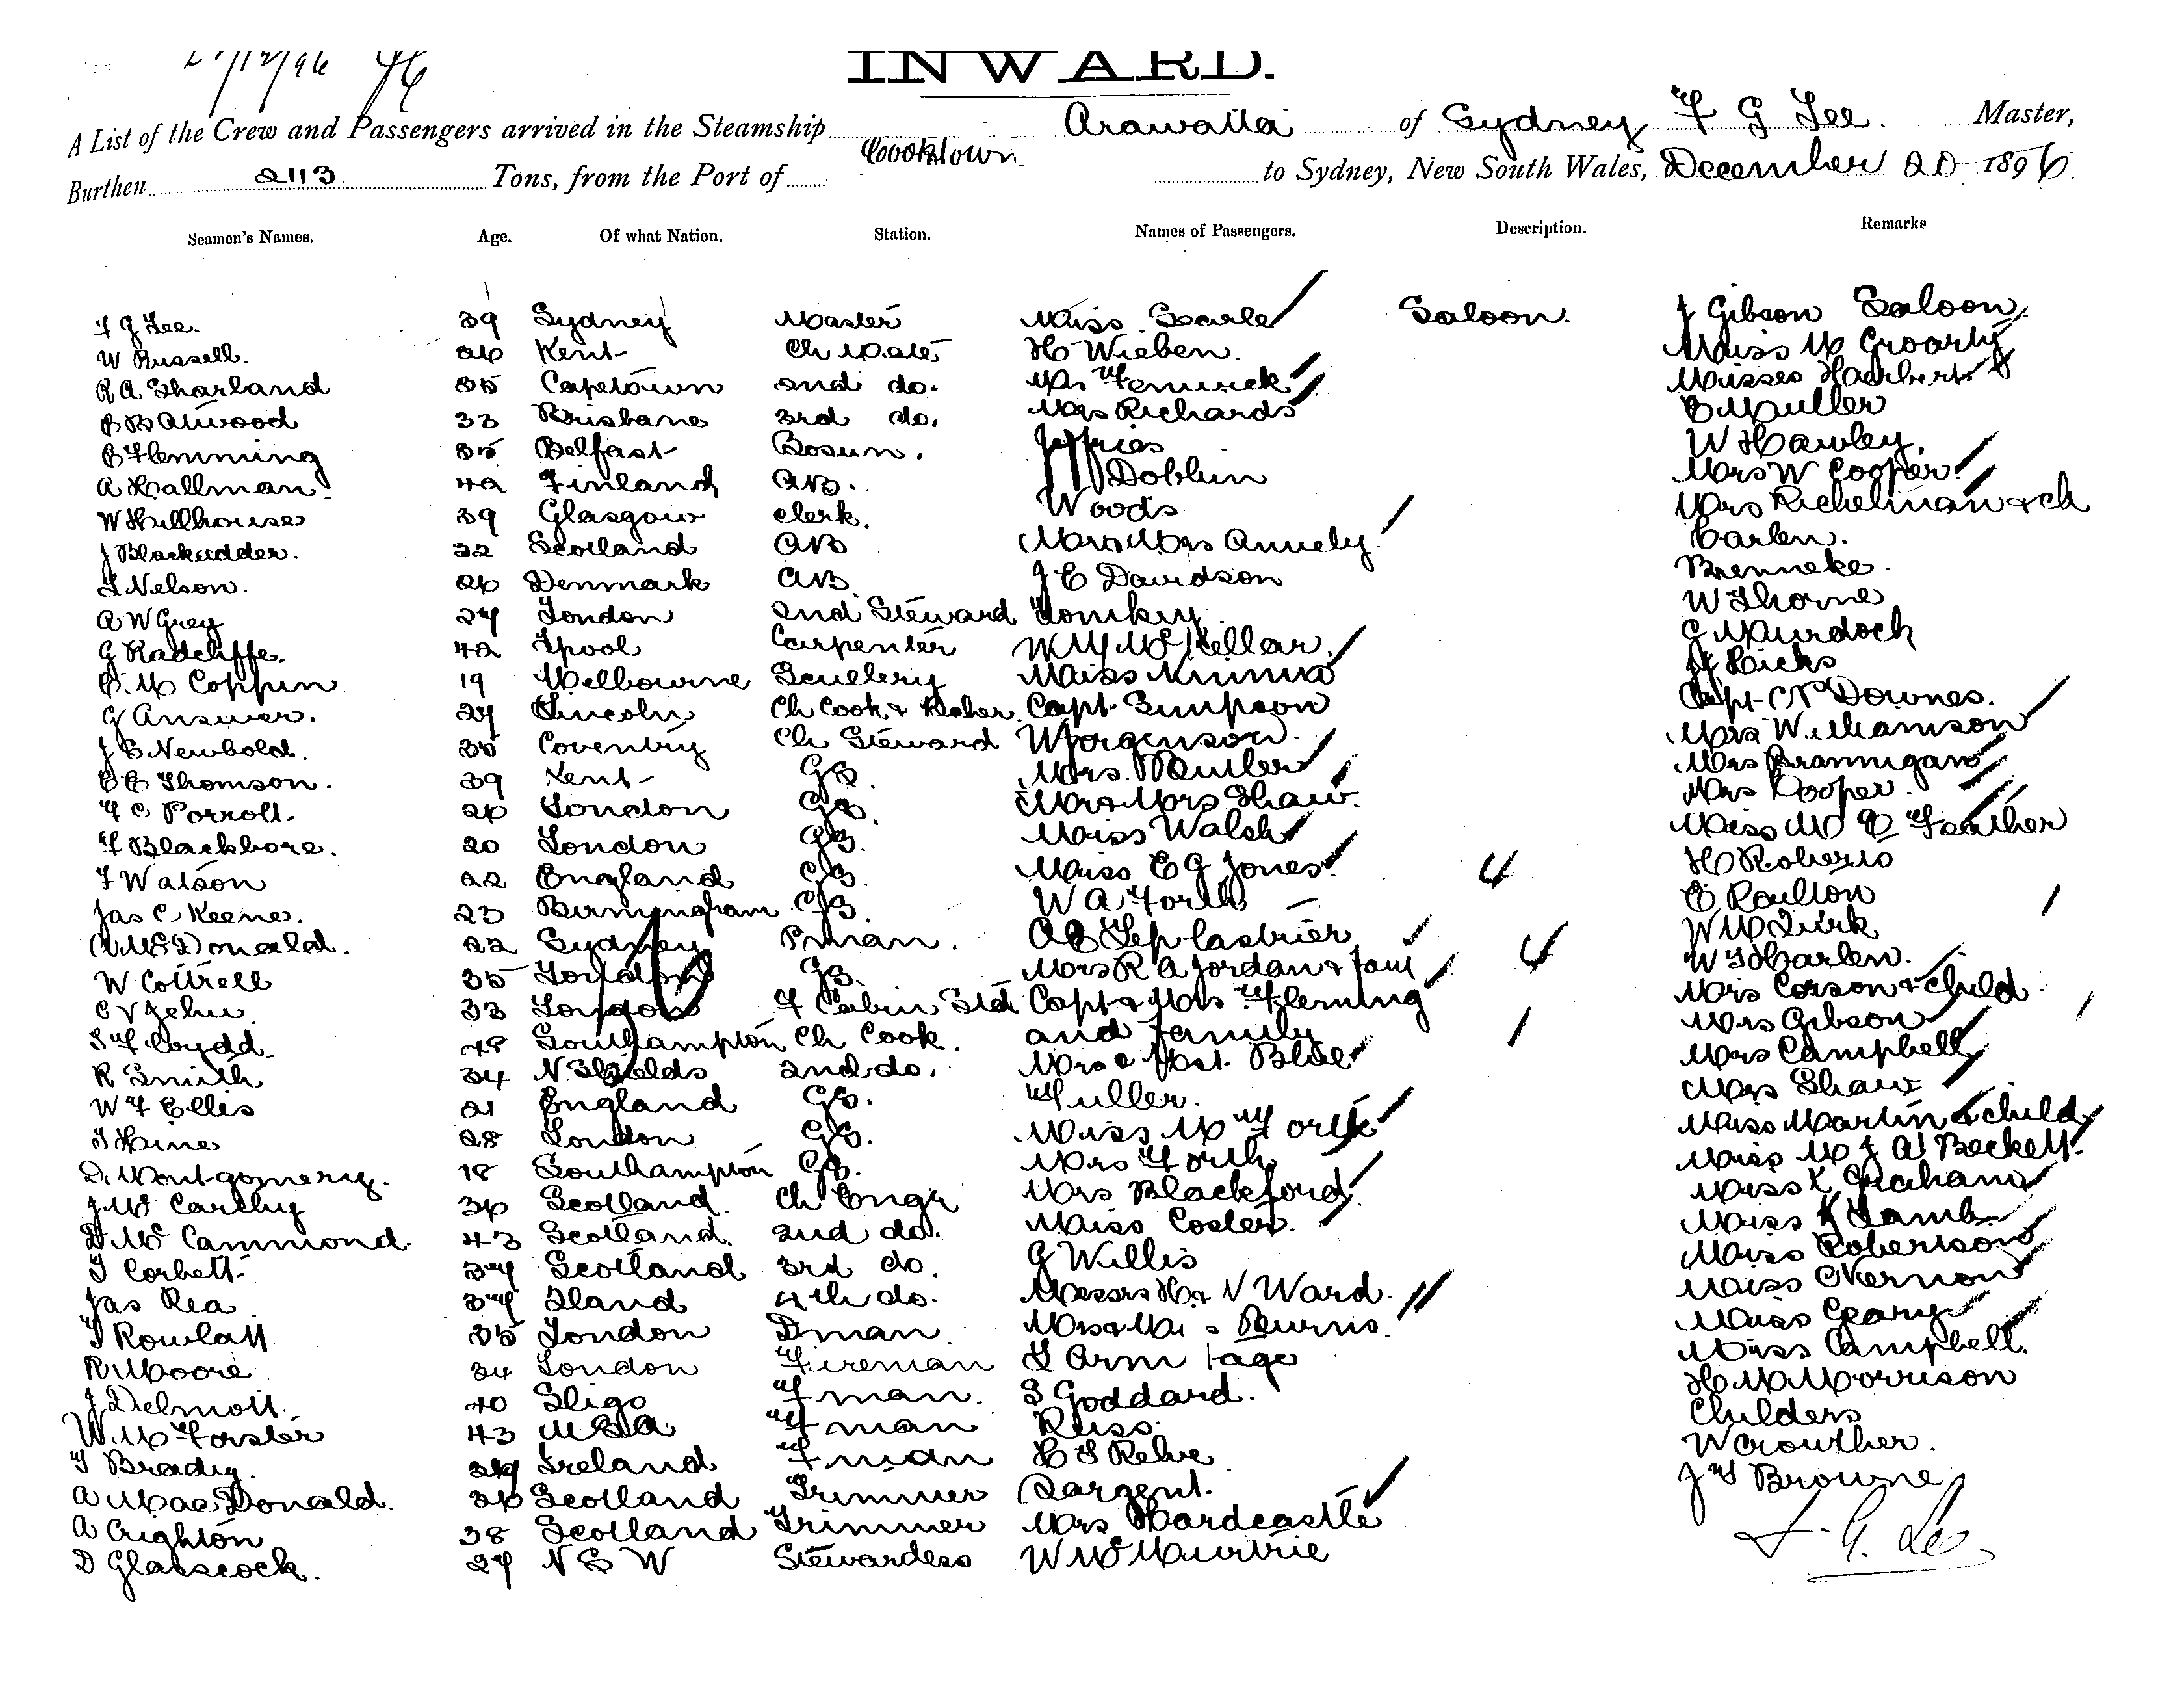 INWARD.
A List of the Crew and Passengers arrived in the Steamship Arawatta of Sydney F G Lee Master,
Burthen 2113 Tons, from the Port of Cooktown to Sydney, New South Wales, December 20 1896
Seamen's Names. Age. Of what Nation. Station. Names of Passengers. Description. Remarks
F G Lee. 39 Sydney Master Miss Searle Saloon. J Gibson Saloon
W Russell. 26 Kent Ch Mate H Wieben. Miss M Groarty
R A Sharland 35 Capetown 2nd do. Mr Fenwick Misses Hachert
B B Atwood 33 Brisbane 3rd do. Mrs Richards B Muller
B Flemming 35 Belfast Bosun. Jeffries W Hawley.
A Hallman. 42 Finland AB. Doblun Mrs W Cooper
W Hillhouse 39 Glasgow Clerk. Woods Mrs Richelman & ch
J Blackadder. 32 Scotland AB Mr & Mrs Annely Carlen.
T Nelson. 26 Denmark AB J E Davidson Brenneke.
A W Grey 27 London 2nd Steward Tomkey W Thorne
G Radcliffe. 42 Lpool Carpenter W M McKellar. G Murdoch
C. M Coppin 19 Melbourne Scullery Miss J Hicks
G Answer. 27 Lincoln Ch Cook & Baker Capt. Simpson Capt Downes.
J B Newbold. 35 Coventry Ch Steward Morgenson. Mrs Williamson
C C Thomson. 39 Kent GS. Mrs. Mrs Brannigan
F C Porrott. 26 London GS. Mr & Mrs Shaw. Mrs Cooper.
F Blackbore. 20 London GS. Miss Walsh Miss M E Feather
F Watson 22 England GS. Miss E G Jones 4 H Roberts
Jas C Keene. 23 Birmingham GS. W A Forth E Roulton
A McDonald. 22 Sydney Pman. A E Leplastrier W M Quirk
W Cottrell 35 London GS. Mrs R A Jordan & fam 4 W Harlen.
C V Jehu. 33 London F Cabin Std Capt & Mrs Fleming Mrs Corson & child
S F Coydd 48 Southampton Ch Cook. and family 1 Mrs Gibson
R Smith 34 N Shields 2nd do. Mrs & Mast. Blue Mrs Campbell
W F Ellis 21 England GS. Fuller. Mrs Shaw
T Hine 28 London GS. Miss M Forth Miss Martin & child
D. Montgomery. 18 Southampton GS. Mrs Forth Miss M J A'Beckett
J McCarthy 36 Scotland. Ch Engr Mrs Blackford Miss K Graham
D McCammond 43 Scotland. 2nd do. Miss Coster. Miss K Lamb
T Corbett 37 Scotland 3rd do. G Willis Miss Robertson
Jas Rea 37 Iland 4th do. Messrs H & N Ward. Miss Vernon
T Rowlatt 35 London Dman. Burns. Miss Geary
R Moore 34 London Fireman T Armitage Miss Campbell.
J Delmott. 40 Sligo Fman. S Goddard. H M Morrison
W. M Forster 43 USA Fman Russ. Childers
T Brady. Ireland Fman C S Relve W Crowther.
A MacDonald. 36 Scotland Trimmer Sargent. J F Browne
A Crighton 38 Scotland Trimmer Mrs Hardcastle F. G. Lee
D Glasscock. 27 N S W Stewardess W McMurtrie